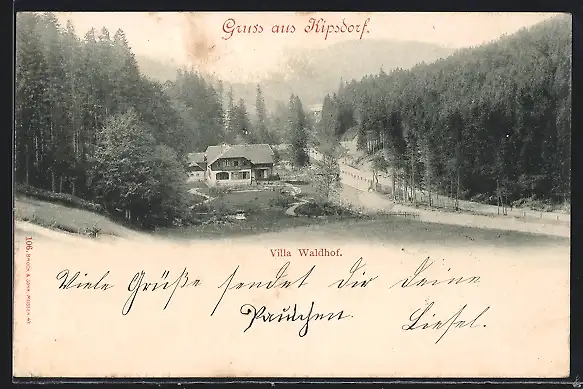 Gruss aus Kipsdorf.
Villa Waldhof.
Viele Grüße sendet Dir Deine
Liesel.